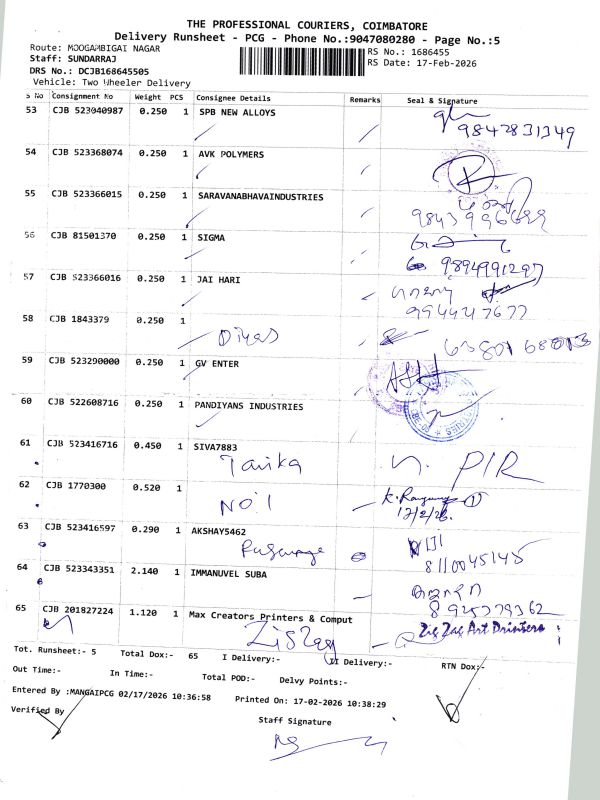 THE PROFESSIONAL COURIERS, COIMBATORE
Delivery Runsheet - PCG - Phone No.:9047080280 - Page No.:5
Route: MOOGAMBIGAI NAGAR
RS No.: 1686455
Staff: SUNDARRAJ
RS Date: 17-Feb-2026
DRS No.: DCJB168645505
Vehicle: Two Wheeler Delivery
S No Consignment No Weight PCS Consignee Details Remarks Seal & Signature
53 CJB 523040987 0.250 1 SPB NEW ALLOYS
9842831349
54 CJB 523368074 0.250 1 AVK POLYMERS
55 CJB 523366015 0.250 1 SARAVANABHAVAINDUSTRIES
56 CJB 81501370 0.250 1 SIGMA
9894991297
57 CJB 523366016 0.250 1 JAI HARI
9944217677
58 CJB 1843379 0.250 1
Diyas
59 CJB 523290000 0.250 1 GV ENTER
60 CJB 522608716 0.250 1 PANDIYANS INDUSTRIES
61 CJB 523416716 0.450 1 SIVA7883
Tarika
62 CJB 1770300 0.520 1
NO:1
17/2/26.
63 CJB 523416597 0.290 1 AKSHAY5462
8110045145
64 CJB 523343351 2.140 1 IMMANUVEL SUBA
8925379362
65 CJB 201827224 1.120 1 Max Creators Printers & Comput
ZigZag
Zig Zag Art Printers
Tot. Runsheet:- 5 Total Dox:- 65 I Delivery:- II Delivery:- RTN Dox:-
Out Time:- In Time:- Total POD:- Delvy Points:-
Entered By :MANGAIPCG 02/17/2026 10:36:58 Printed On: 17-02-2026 10:38:29
Verified By
Staff Signature